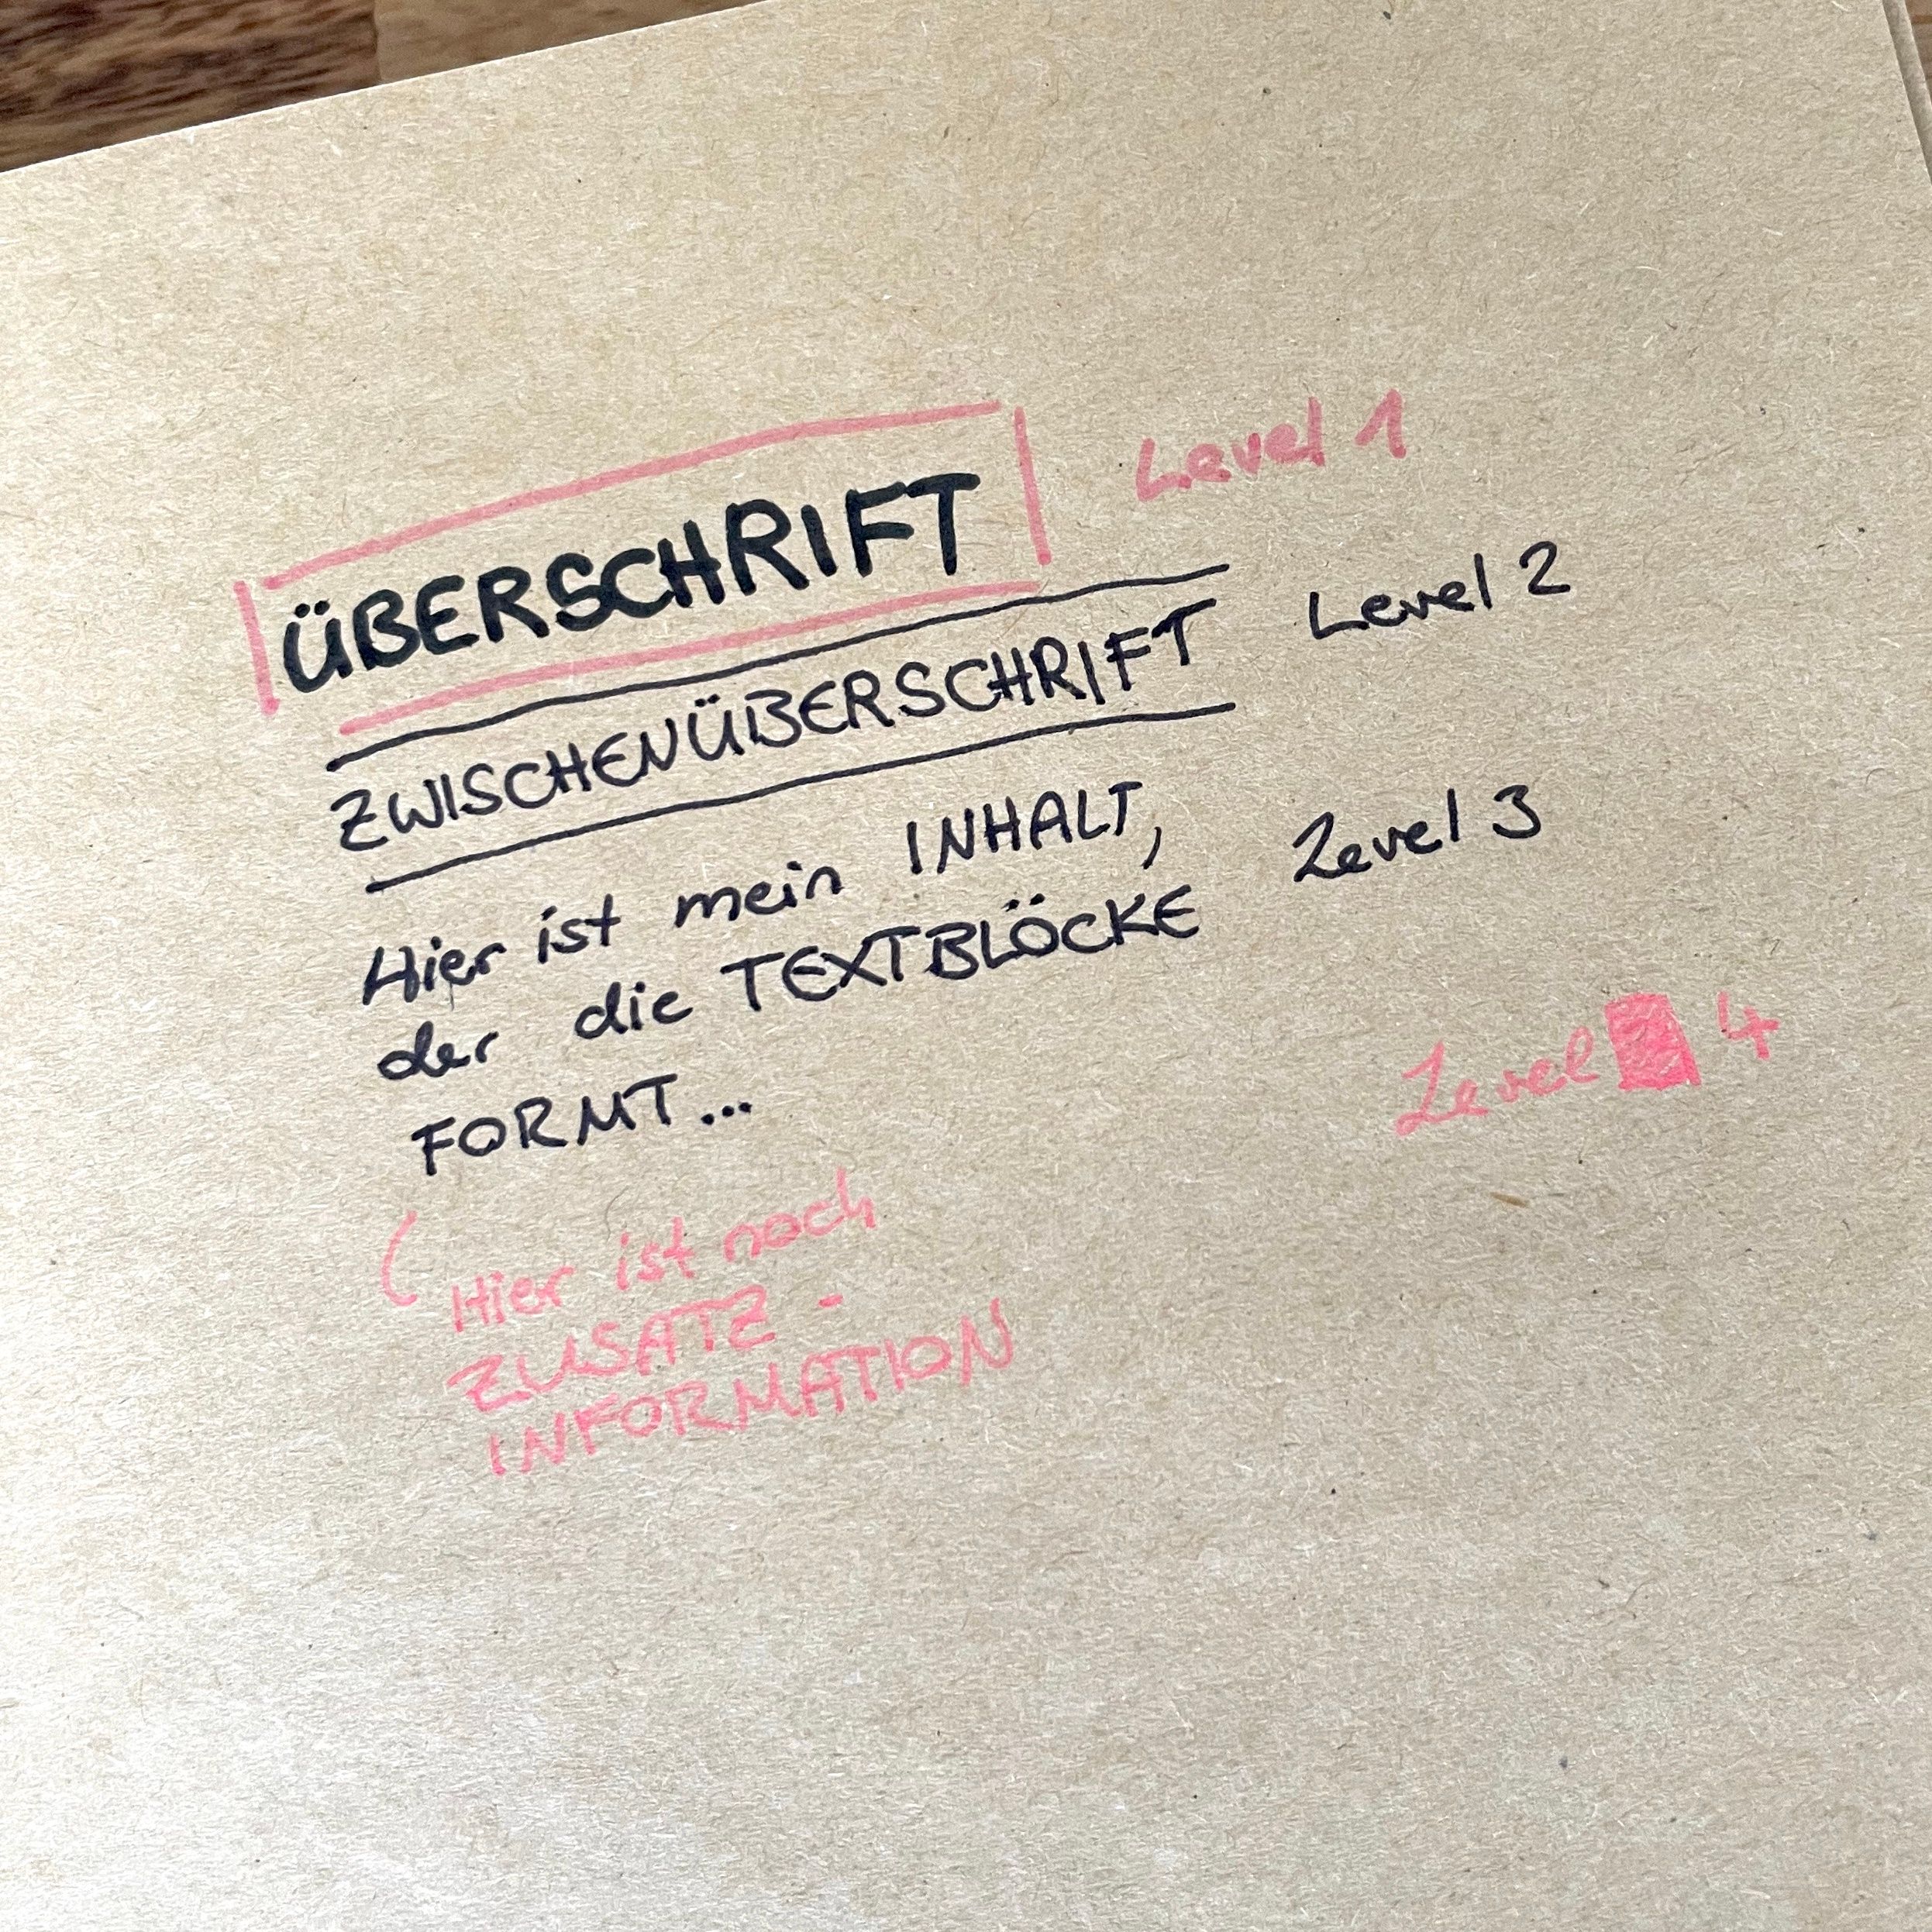 ÜBERSCHRIFT Level 1
ZWISCHENÜBERSCHRIFT Level 2
Hier ist mein INHALT, Level 3
der die TEXTBLÖCKE
FORMT...
Level 4
(Hier ist noch
ZUSATZ-
INFORMATION